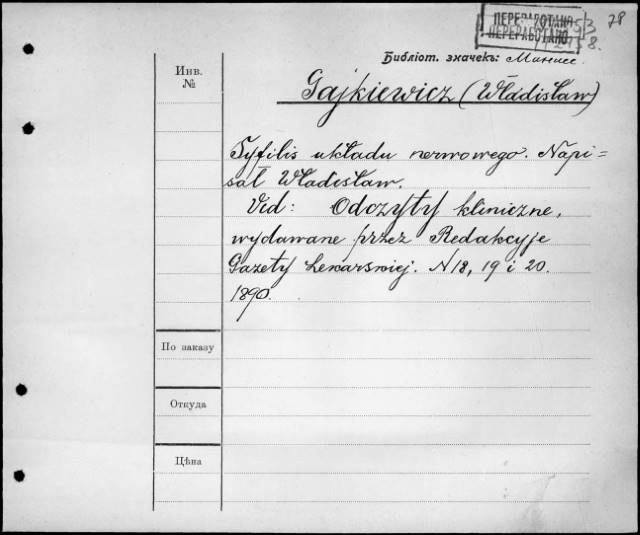 ПЕРЕРАБОТАНО
ПЕРЕРАБОТАНО
78
Библіот. значекъ:
Инв.
№
Gajkiewicz (Władisław)
Syfilis układu nerwowego. Napi=
sał Władisław.
Vid: Odczyty kliniczne,
wydawane przez Redakcyje
Gazety Lekarskiej. N 18, 19 i 20.
1890.
По заказу
Откуда
Цѣна